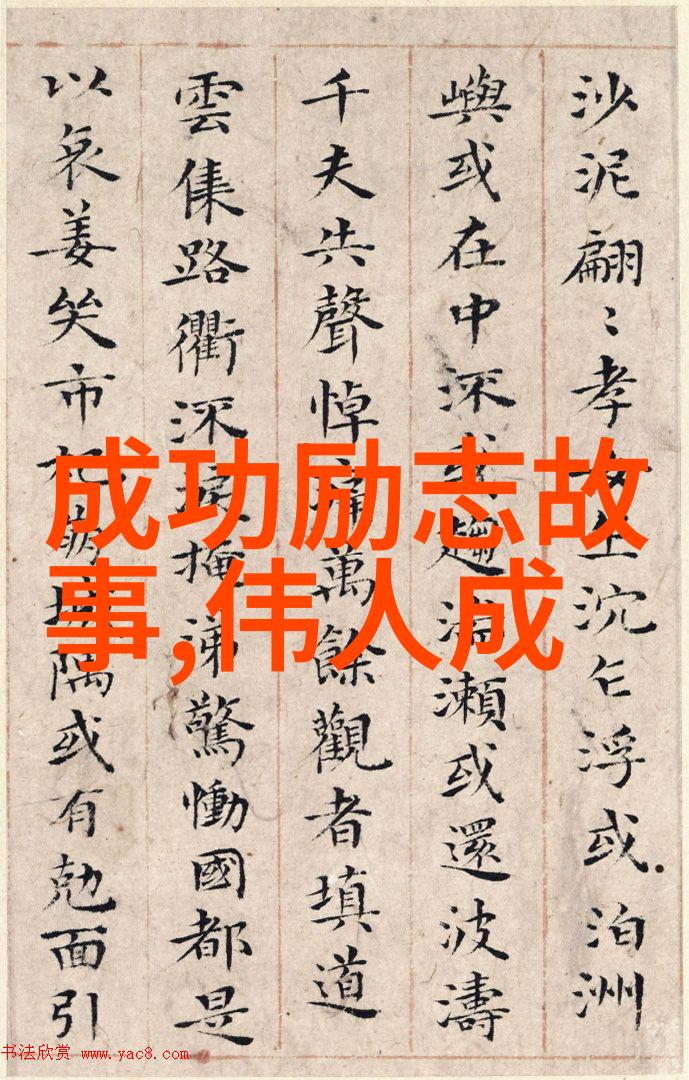 沙泥翩〻孝女乍沉乍浮或泊洲
嶼或在中深或趨湍瀨或還波濤
千夫共聲悼痛萬餘觀者填道
雲集路衢深淚掩涕驚慟國都是
以哀姜哭市杞崩城隅或有勀面引
成功励志故
事,伟人成
书法欣赏 www.yac8.com